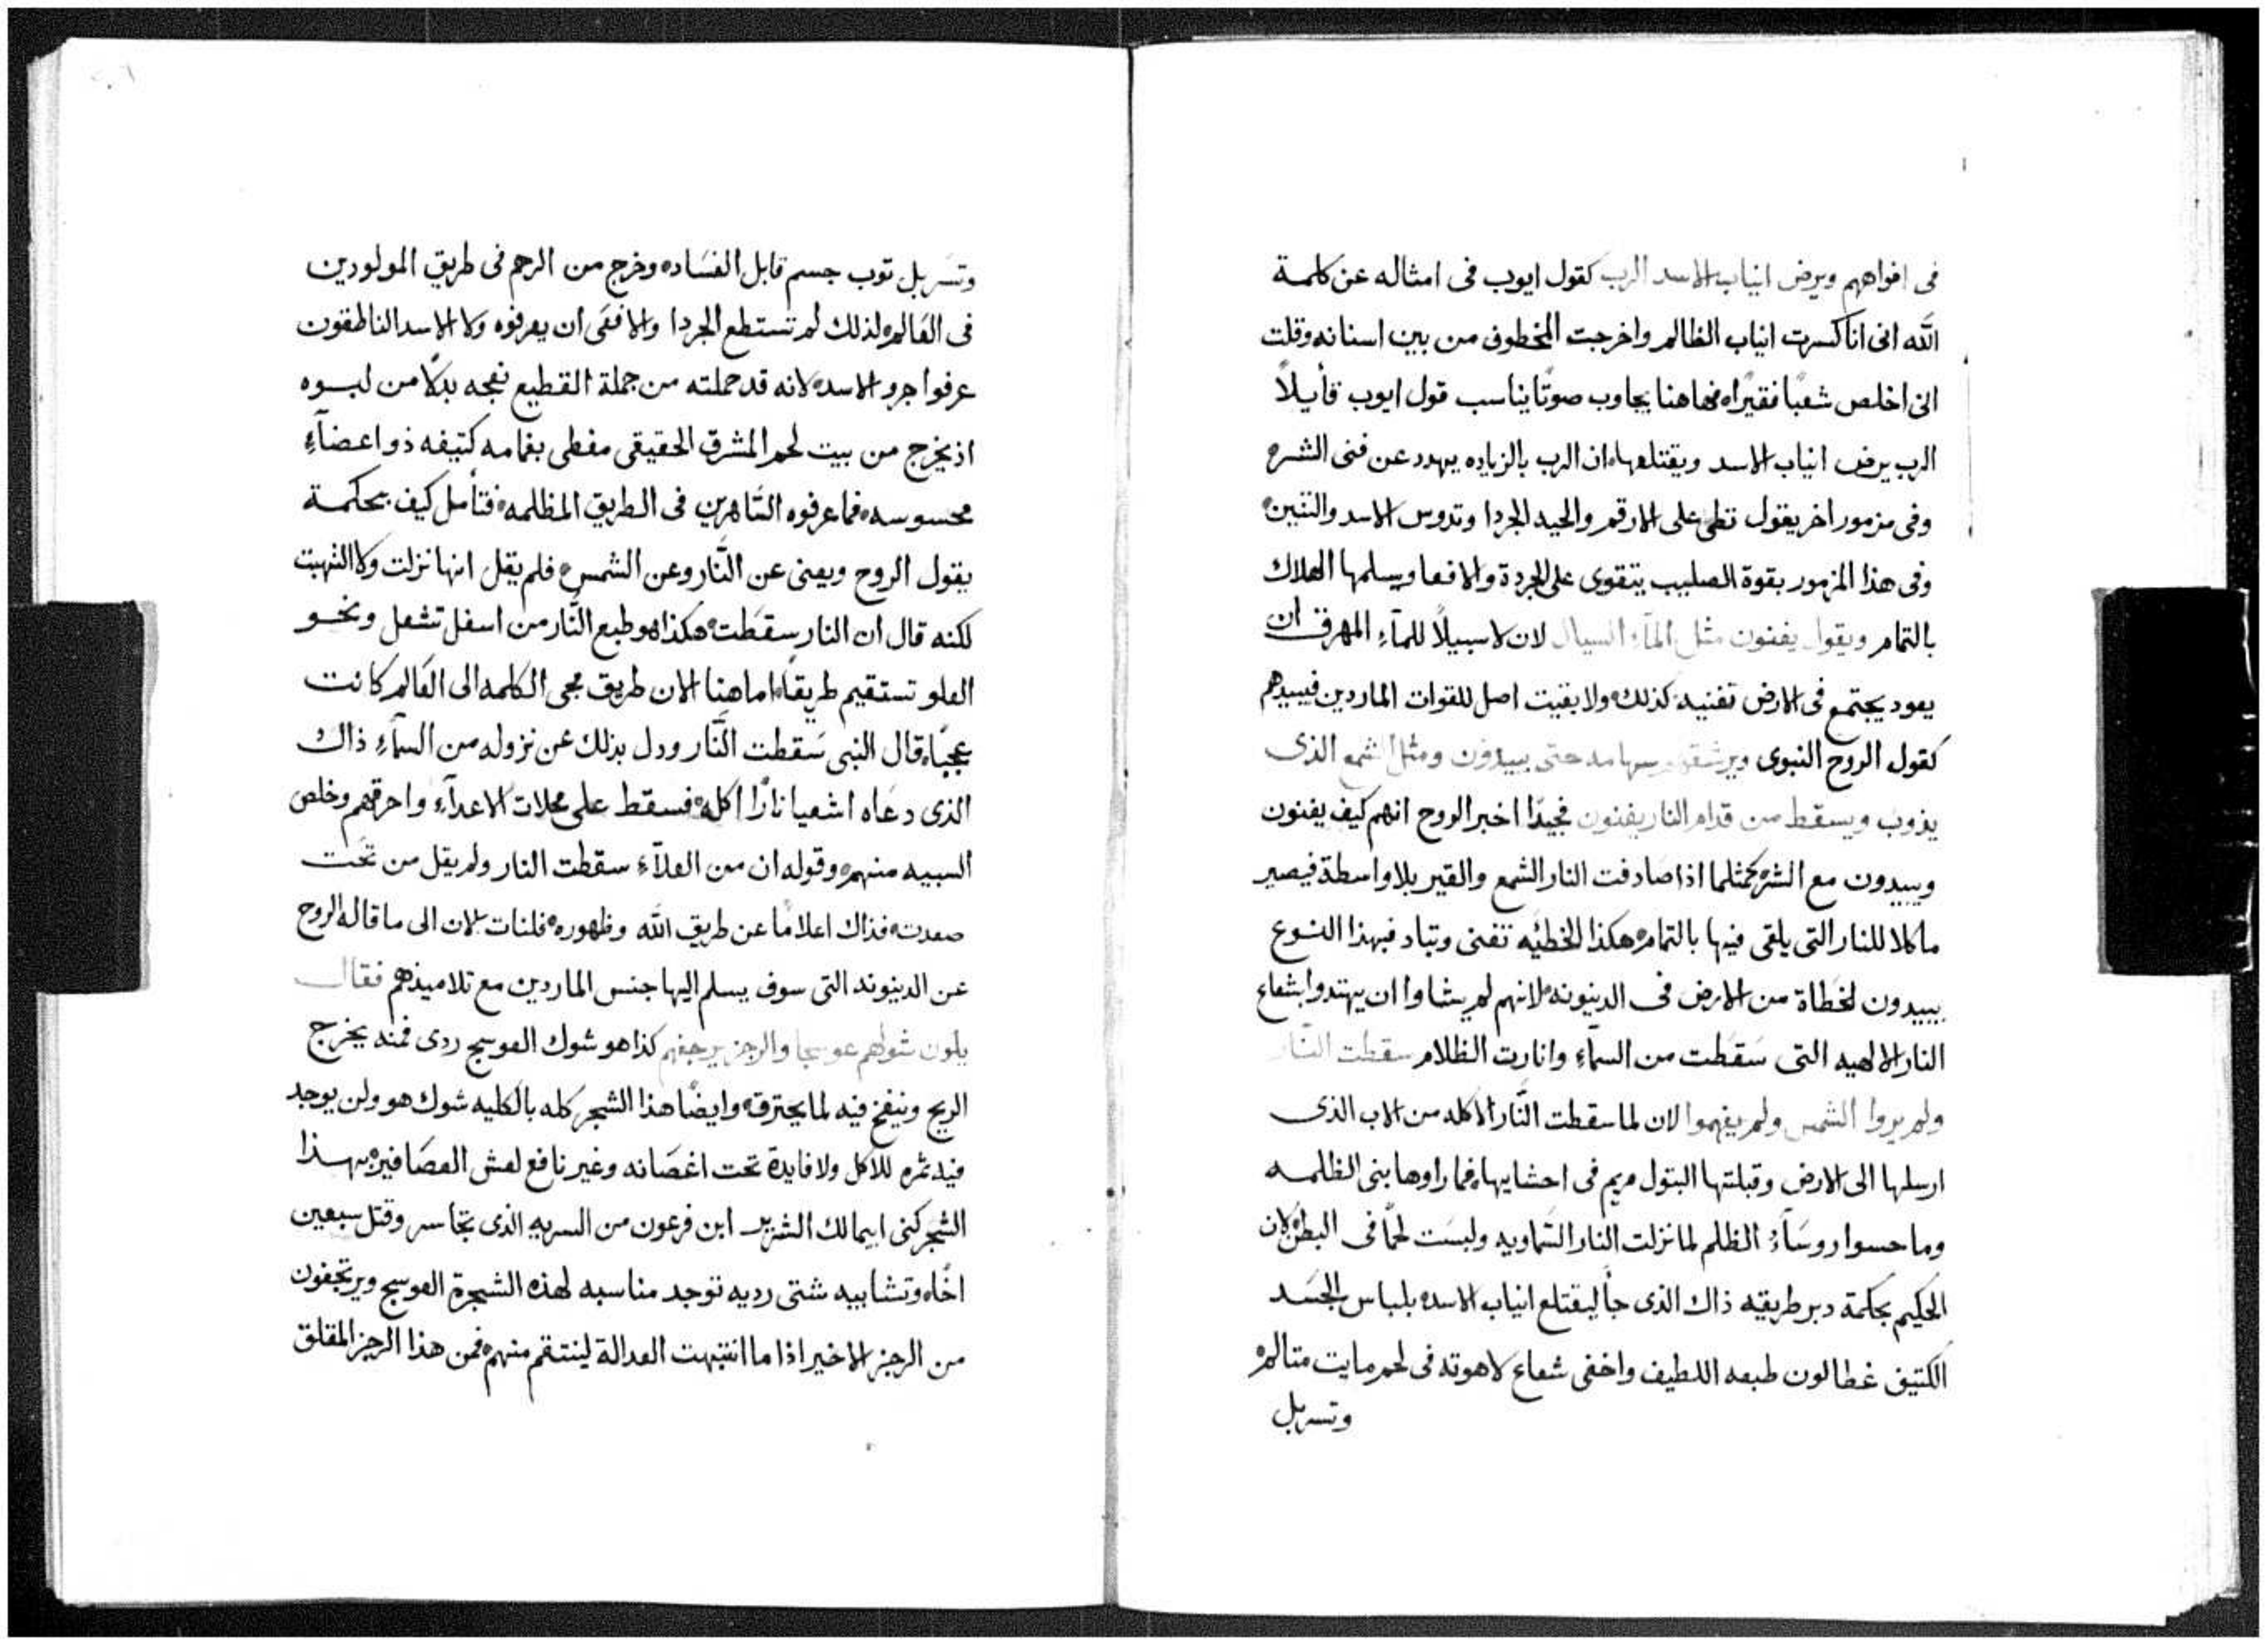 في افواههم ويرض انياب الاسد الرب كقول ايوب في امثاله عن كلمة
الله انى انا كسرت انياب الظالم واخرجت المخطوف من بين اسنانه وقلت
انى اخلص شعبًا فقيرًا فهاهنا يجاوب صوتًا يناسب قول ايوب قأيلاً
الرب يرض انياب الاسد ويقتلعها ان الرب بالزياده يهدد عن فنى الشره
وفى مزمور اخر يقول تطى على الارقم والحيه الجردا وتدوس الاسد والتنين
وفى هذا المزمور بقوة الصليب يتقوى على الجردة والافعا ويسلمها الهلاك
بالتمام ويقول يفنون مثل المآء السيال لان لا سبيلاً للمآء المهرق ان
يعود يجتمع فى الارض تفنيه كذلك ولا بقيت اصل للقوات الماردين فيبيدهم
كقول الروح النبوى ويرشقهم سهامه حتى يبيدون ومثل الشمع الذى
يذوب ويسقط من قدام النار يفنون فجيدًا اخبر الروح انهم كيف يفنون
ويبيدون مع الشره كمثلما اذا صادفت النار الشمع والقير بلا واسطة فيصير
ماكلا للنار التى يلقى فيها بالتمام هكذا الخطيه تفنى وتباد فبهذا النوع
يبيدون لخطاة من الارض فى الدينونه لانهم لم يشاوا ان يهتدوا بشعاع
النار الالهيه التى سَقَطت من السمآء وانارت الظلام سقطت النار
ولم يروا الشمس ولم يفهموا الان لما سقطت النَّار الاكله من الاب الذى
ارسلها الى الارض وقبلتها البتول مريم فى احشايها فما راوها بنى الظلمه
وما حسوا روسَآءُ الظلم لما نزلت النار السَماويه ولبسَت لحمًا فى البطن لان
الحكيم بحكمة دبر طريقه ذاك الذى جأ ليقتلع انياب الاسده بلباس الجَسَد
الكتيف غطا لون طبعه اللطيف واخفى شعاع لاهوته فى لحم مايت متالم
وتسربل
وتسَربل توب جسم قابل الفسَاده وخرج من الرحم فى طريق المولودين
فى العَالم لذلك لم تستطع الجردا والافعَى ان يعرفوه ولا الاسد الناطقون
عرفوا جرو الاسد لانه قد حملته من جملة القطيع نعجه بدلاً من لبوه
اذ يخرج من بيت لحم المشرق الحقيقى مغطى بغمامه كتيفه ذو اعضآءِ
محسوسه فما عرفوه السَّاهرين فى الطريق المظلمه فتأمل كيف بحكمة
يقول الروح ويعنى عن النَّار وعن الشمس فلم يقل انها نزلت ولا التهبت
لكنه قال ان النار سقَطَت هكذا هو طبع النَّار من اسفل تشعل ونحو
العلو تستقيم طريقًا اما هنا الان طريق مجى الكلمه الى العَالم كانت
عجبًا قال النبى سَقطت النَّار ودل بذلك عن نزوله من السمآءِ ذاك
الذى دعَاه اشعيا نارًا اكله فسقط على محلات الاعدآءِ واحرقهم وخلص
السبيه منهم وقوله ان من العلآءِ سقطت النار ولم يقل من تحَت
صعدت فذاك اعلامًا عن طريق الله وظهوره فلنات الان الى ما قاله الروح
عن الدينونه التى سوف يسلم اليها جنس الماردين مع تلاميذهم فقال
يلون شوكهم عوسجا والرجز يرجفهم كذا هو شوك العوسج ردى فمنه يخرج
الريح وينفخ فيه لما يحترق وايضًا هذا الشجر كله بالكليه شوك هو ولن يوجد
فيه ثمره للاكل ولا فايدة تحت اغصَانه وغير نافع لعش العصَافير بهذا
الشجر كنى ابيمالك الشرير ابن فرعون من السريه الذى تجاسر وقتل سبعين
اخًا وتشابيه شتى رديه توجد مناسبه لهذه الشجرة العوسج ويرتجفون
من الرجز الاخير اذا ما انتبهت العدالة لينتقم منهم فمن هذا الرجز المقلق